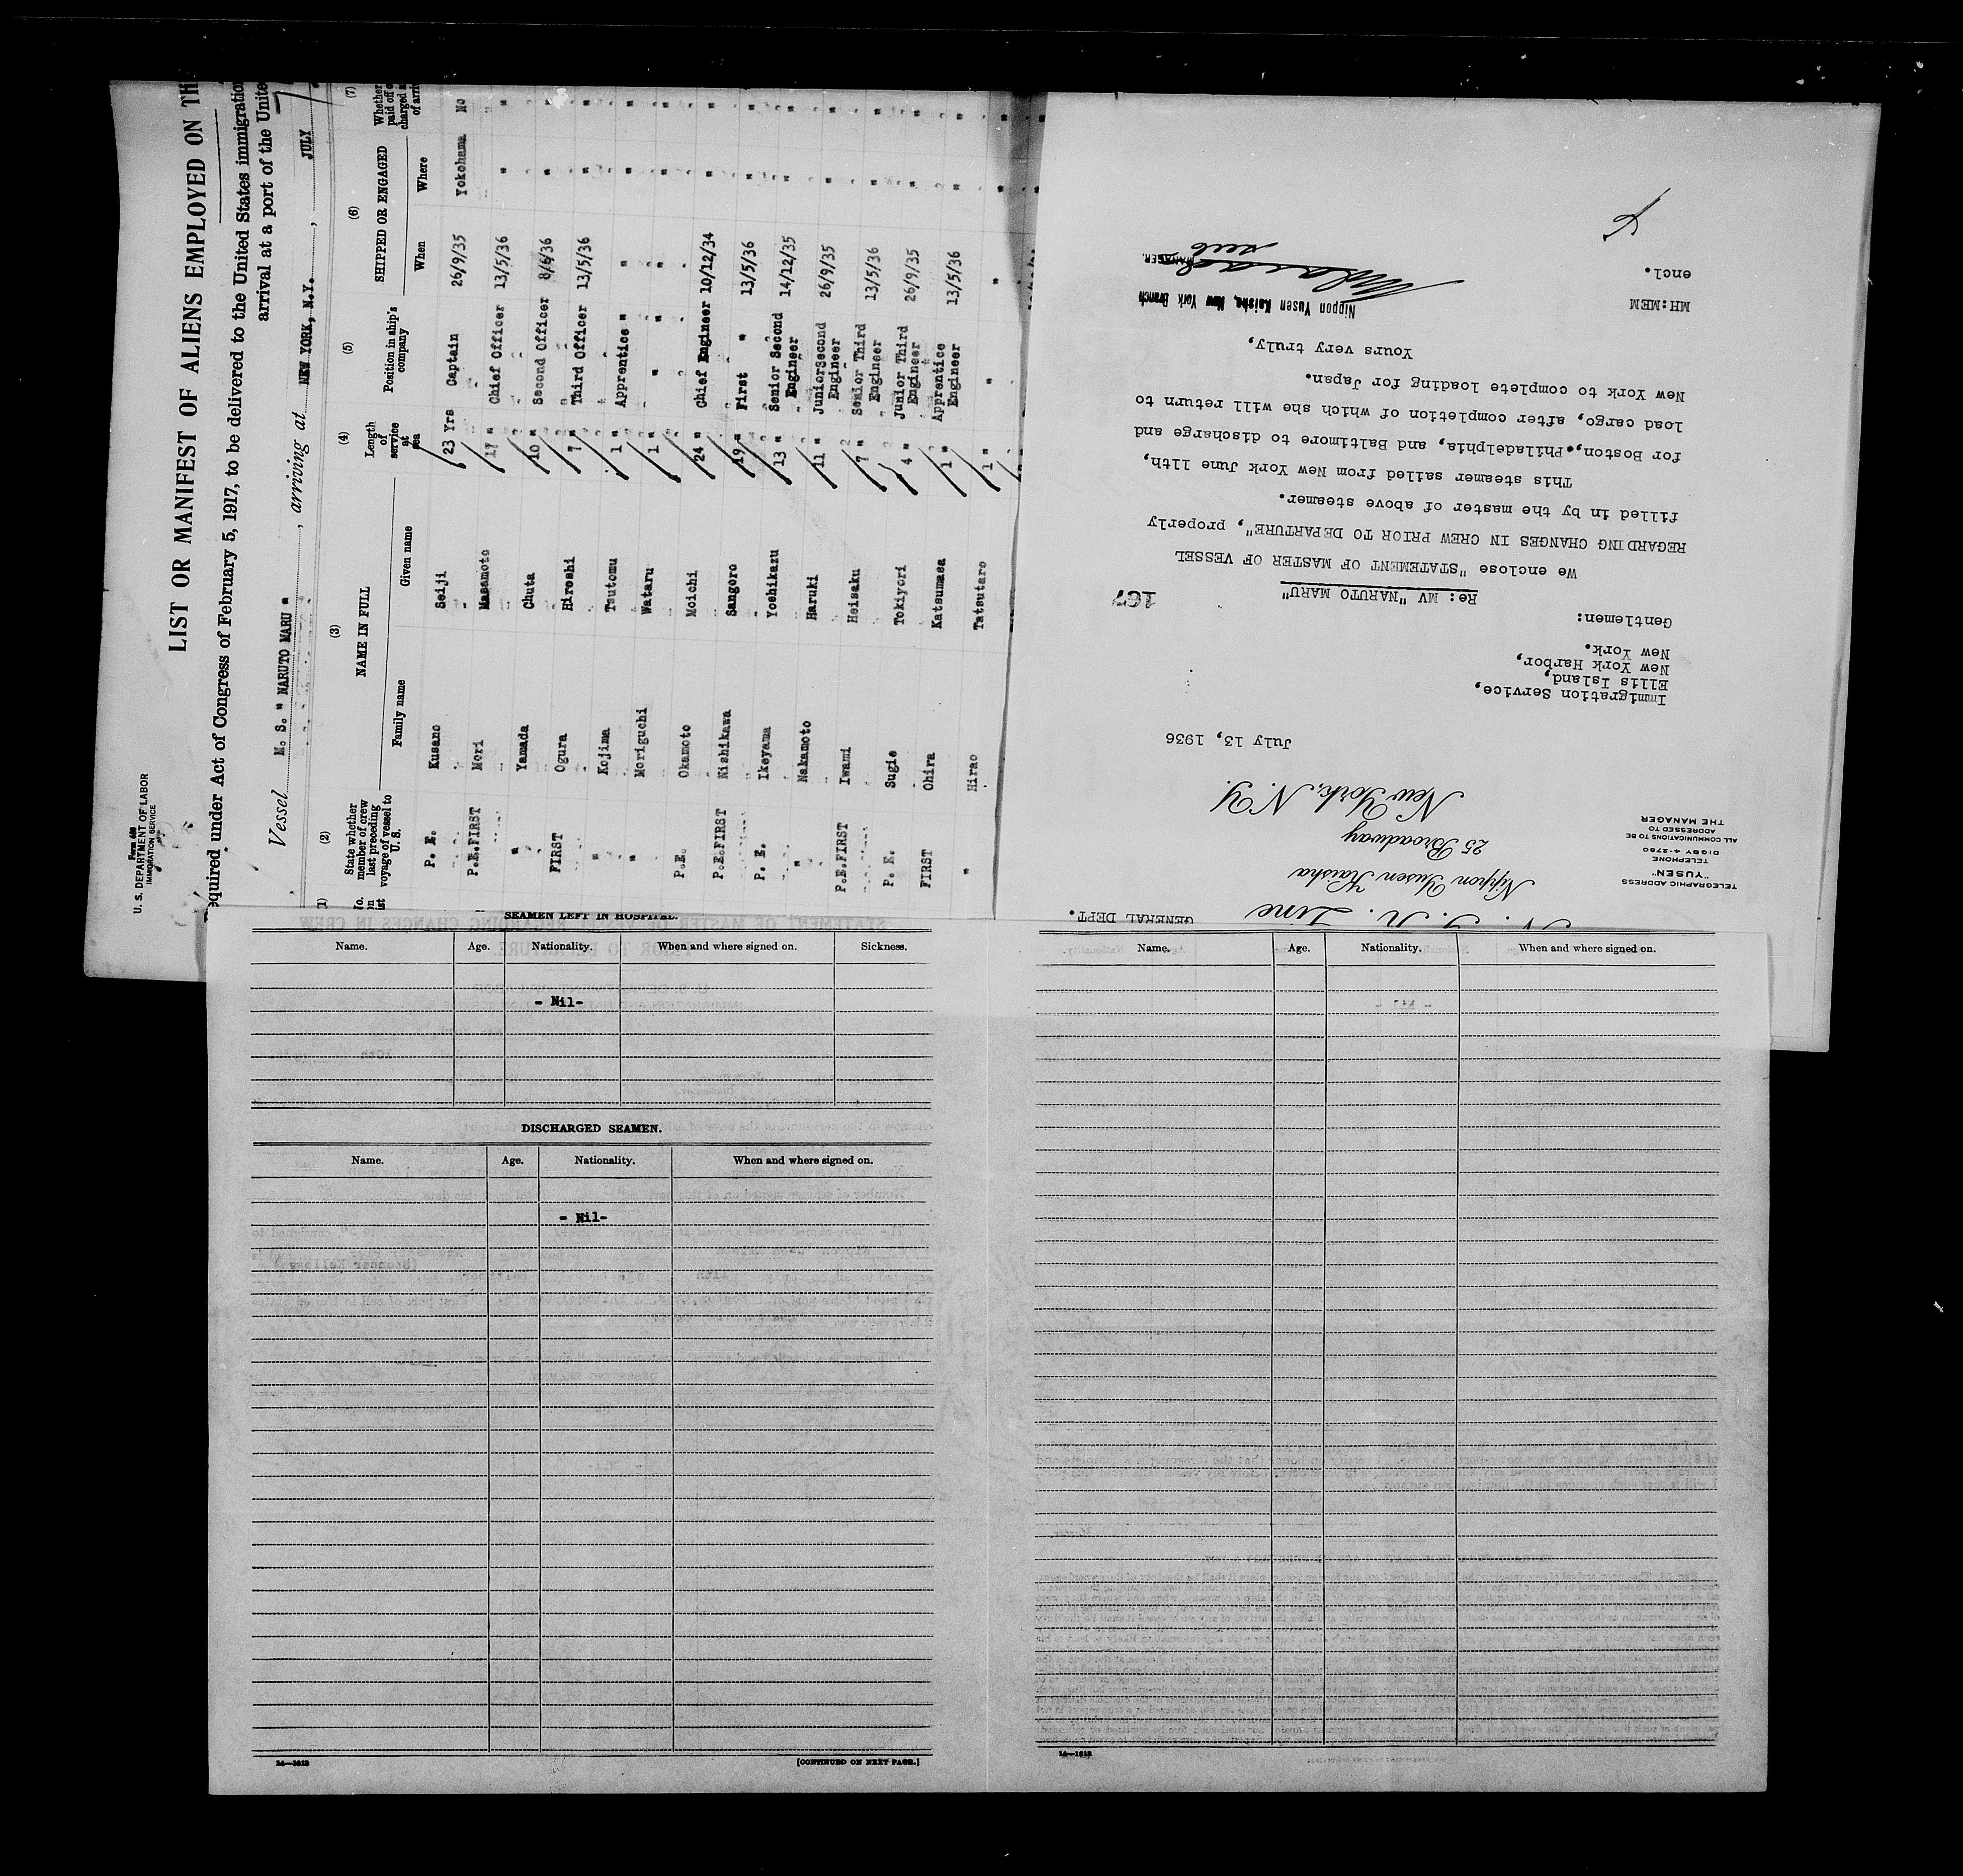 Form 689
U. S. DEPARTMENT OF LABOR
IMMIGRATION SERVICE
LIST OR MANIFEST OF ALIENS EMPLOYED ON TH
equired under Act of Congress of February 5, 1917, to be delivered to the United States immigratio
arrival at a port of the Unite
Vessel M. S. " NARUTO MARU " , arriving at NEW YORK, N.Y. , JULY
(2) (3) (4) (5) (6) (7)
State whether member of crew last preceding voyage of vessel to U. S. NAME IN FULL Family name Given name Length of service at sea Position in ship's company SHIPPED OR ENGAGED When Where
P. E. Kusano Seiji 23 Yrs Captain 26/9/35 Yokohama No
P.E.FIRST Mori Masamoto 17 " Chief Officer 13/5/36 " "
" Yamada Chuta 10 " Second Officer 8/6/36 " "
FIRST Ogura Hiroshi 7 " Third Officer 13/5/36 " "
" Kojima Tsutomu 1 " Apprentice " " " "
" Moriguchi Wataru 1 " " " " " "
P.E. Okamoto Moichi 24 " Chief Engineer 10/12/34 " "
P.E.FIRST Nishikawa Sangoro 19 " First " 13/5/36 " "
P. E. Ikeyama Yoshikazu 13 " Senior Second Engineer 14/12/35 " "
" Nakamoto Haruki 11 " Junior Second Engineer 26/9/35 " "
P.E.FIRST Iwami Heisaku 7 " Senior Third Engineer 13/5/36 " "
P. E. Sugie Tokiyori 4 " Junior Third Engineer 26/9/35 " "
FIRST Ohira Katsumasa 1 " Apprentice Engineer 13/5/36 " "
" Hirao Tatsutaro 1 " " " " "
N. Y. K. Line
GENERAL DEPT.
Nippon Yusen Kaisha
25 Broadway
New York, N.Y.
TELEGRAPHIC ADDRESS
"YUSEN"
TELEPHONE
DIGBY 4-2780
ALL COMMUNICATIONS TO BE
ADDRESSED TO
THE MANAGER
July 13, 1936
Immigration Service,
Ellis Island,
New York Harbor,
New York.
Gentlemen:
167
Re: MV "NARUTO MARU"
We enclose "STATEMENT OF MASTER OF VESSEL
REGARDING CHANGES IN CREW PRIOR TO DEPARTURE", properly
filled in by the master of above steamer.
This steamer sailed from New York June 11th,
for Boston, Philadelphia, and Baltimore to discharge and
load cargo, after completion of which she will return to
New York to complete loading for Japan.
Yours very truly,
Nippon Yusen Kaisha, New York Branch
MANAGER.
MH:MEM
encl.
SEAMEN LEFT IN HOSPITAL.
Name. Age. Nationality. When and where signed on. Sickness.
- Nil-
DISCHARGED SEAMEN.
Name. Age. Nationality. When and where signed on.
- Nil-
14—1613 [CONTINUED ON NEXT PAGE.]
Name. Age. Nationality. When and where signed on.
14—1613